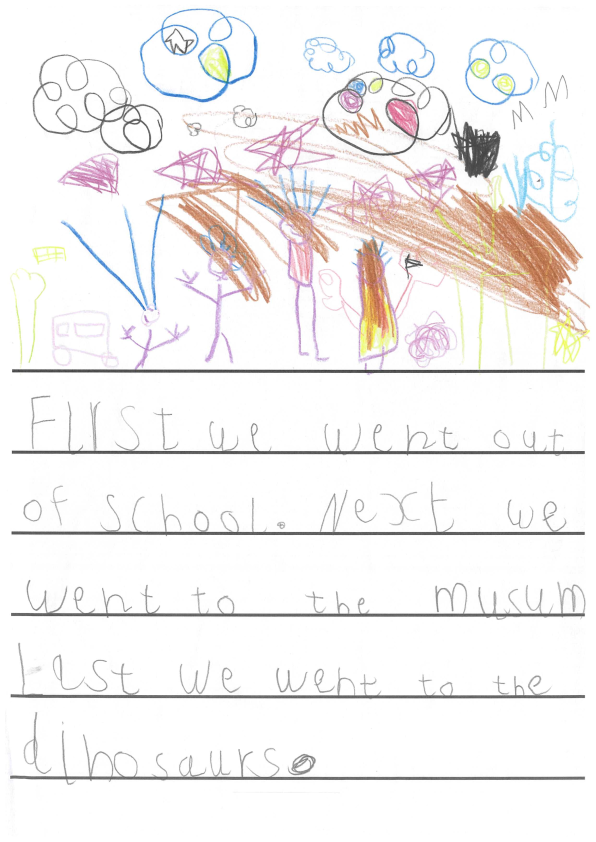 First we went out
of school. Next we
went to the musum
Last we went to the
dinosaurs.